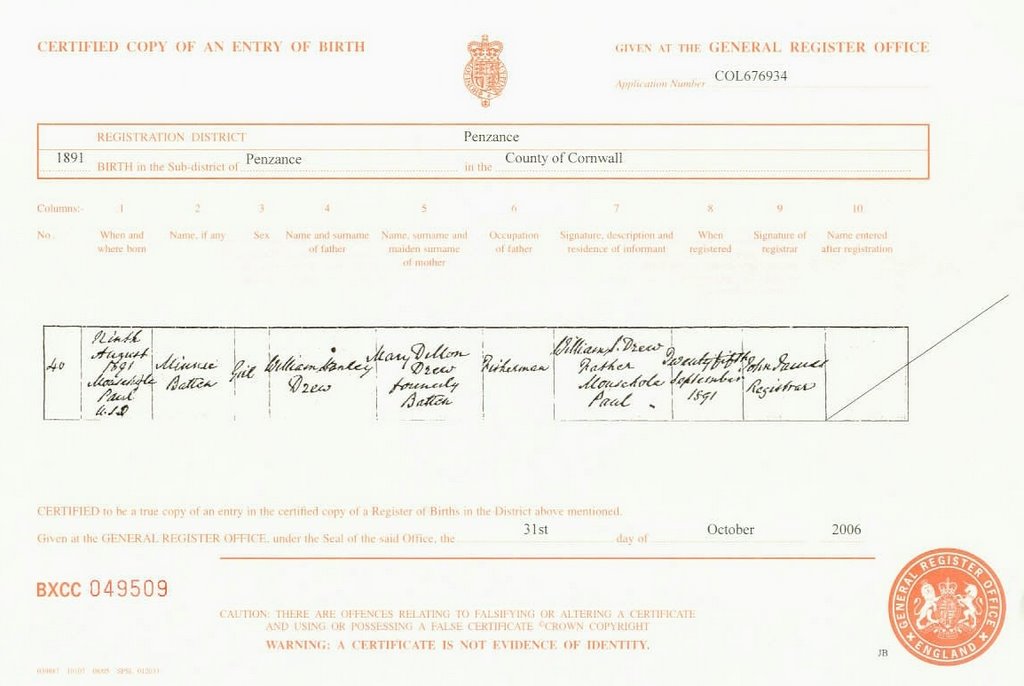 CERTIFIED COPY OF AN ENTRY OF BIRTH
GIVEN AT THE GENERAL REGISTER OFFICE
Application Number COL676934
REGISTRATION DISTRICT Penzance
1891 BIRTH in the Sub-district of Penzance in the County of Cornwall
Columns:- 1 2 3 4 5 6 7 8 9 10
No. When and where born Name, if any Sex Name and surname of father Name, surname and maiden surname of mother Occupation of father Signature, description and residence of informant When registered Signature of registrar Name entered after registration
40
Ninth
August
1891
Mousehole
Paul
U.S.D
Minnie
Batten
Girl
William Stanley
Drew
Mary Dillon
Drew
formerly
Batten
Fisherman
William S. Drew
Father
Mousehole
Paul
Twenty fifth
September
1891
John James
Registrar
CERTIFIED to be a true copy of an entry in the certified copy of a Register of Births in the District above mentioned.
Given at the GENERAL REGISTER OFFICE, under the Seal of the said Office, the 31st day of October 2006
BXCC 049509
CAUTION: THERE ARE OFFENCES RELATING TO FALSIFYING OR ALTERING A CERTIFICATE
AND USING OR POSSESSING A FALSE CERTIFICATE ©CROWN COPYRIGHT
WARNING: A CERTIFICATE IS NOT EVIDENCE OF IDENTITY.
GENERAL REGISTER OFFICE
ENGLAND
JB